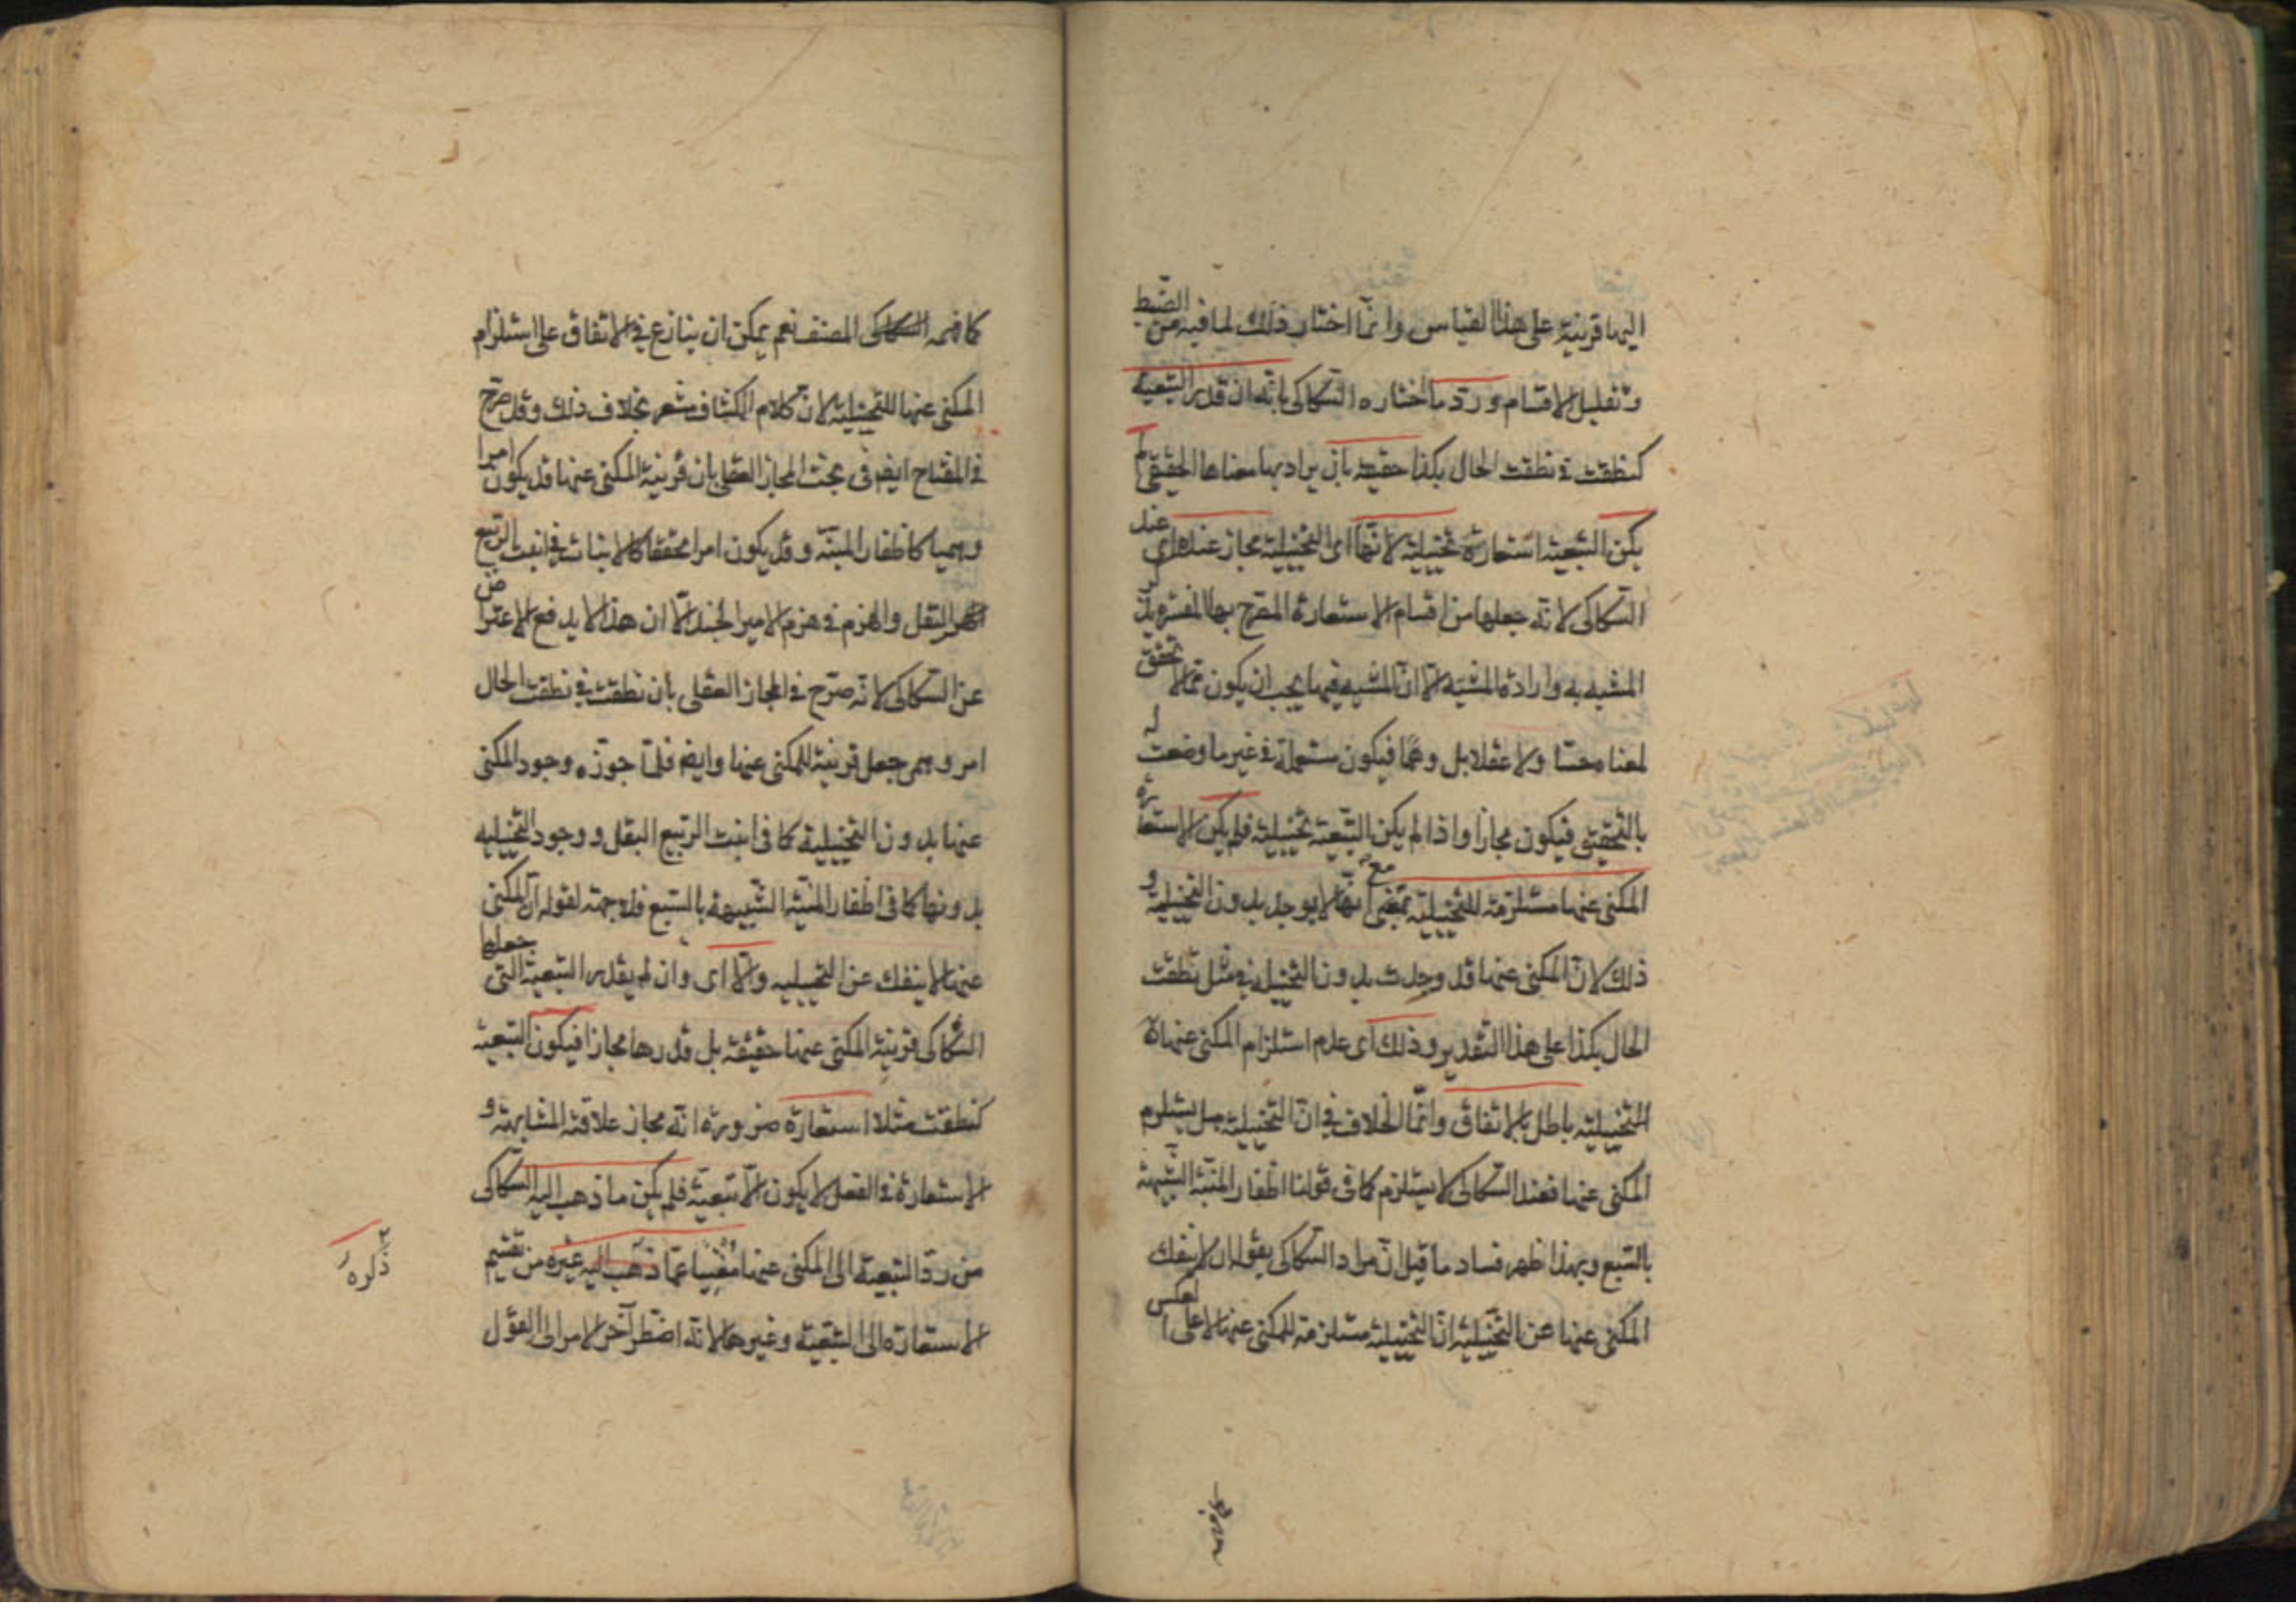 اليها قرينة على هذا القياس وانما اختار ذلك لما فيه من الضبط
وتقليل الاقسام ورد ما اختاره السكاكى بانه ان قدر التبعية
كنطقت فى نطقت الحال بكذا حقيقة بان يراد بها معناها الحقيقى لم
يكن التبعية استعارة تخييلية لانها اى التخييلية مجاز عنده اى عند
السكاكى لانه جعلها من اقسام الاستعارة المصرح بها المفسرة بذكر
المشبه به وارادة المشبه الا ان المشبه فيها يجب ان يكون مما لا تحقق
لمعناه حسا ولا عقلا بل وهما فيكون مستعملة فى غير ما وضعت له
بالتحقيق فيكون مجازا واذا لم يكن التبعية تخييلية فلم يكن الاستعارة
المكنى عنها مستلزمة للتخييلية بمعنى انها لا يوجد بدون التخييلية و
ذلك لان المكنى عنها قد وجدت بدون التخييل فى مثل نطقت
الحال بكذا على هذا التقدير وذلك اى عدم استلزام المكنى عنها
التخييلية باطل بالاتفاق وانما الخلاف فى ان التخييلية هل يستلزم
المكنى عنها فعند السكاكى لا يستلزم كما فى قولنا اظفار المنية الشبيهة
بالسبع وبهذا ظهر فساد ما قيل ان مراد السكاكى بقوله لا ينفك
المكنى عنها عن التخييلية ان التخييلية مستلزمة للمكنى عنها لا على العكس
كما فهمه المصنف نعم يمكن ان ينازع فى الاتفاق على استلزام
المكنى عنها للتخييلية لان كلام الكشاف مشعر بخلاف ذلك وقد صرح
فى المفتاح ايضم فى بحث المجاز العقلى بان قرينة المكنى عنها قد يكون امرا
وهميا كاظفار المنية وقد يكون امرا محققا كالانبات فى انبت الربيع
البقل والهزم فى هزم الامير الجند الا ان هذا لا يدفع الاعتراض
عن السكاكى لانه صرح فى المجاز العقلى بان نطقت فى نطقت الحال
امر وهمى جعل قرينة للمكنى عنها وايضم فلما جوز وجود المكنى
عنها بدون التخييلية كما فى انبت الربيع البقل ووجود التخييلية
بدونها كما فى اظفار المنية الشبيهة بالسبع فلا جهة لقوله ان المكنى
عنها لا ينفك عن التخييلية والا اى وان لم يقدر التبعية التى جعلها
السكاكى قرينة المكنى عنها حقيقة بل قدرها مجازا فيكون التبعية
كنطقت مثلا استعارة ضرورة انه مجاز علاقته المشابهة و
الاستعارة فى الفعل لا يكون الا تبعية فلم يكن ما ذهب اليه السكاكى
من رد التبعية الى المكنى عنها مغنيا عما ذهب اليه غيره من تقسيم
ذكره
الاستعارة الى التبعية وغيرها لانه اضطر آخر الامر الى القول